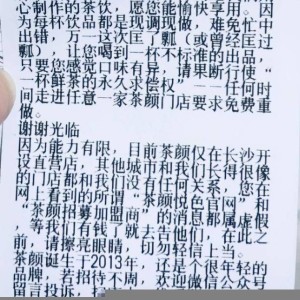 心制作的茶饮，愿您能愉快享用。因
为每杯饮品都是现调现做，难免忙中
出错，万一这次匡了瓢（或曾经匡过
瓢），让您喝到一杯不标准的出品，
只要您感觉口味有异，请果断行使“
一杯鲜茶的永久求偿权”——任何时
间走进任意一家茶颜门店要求免费重
做。
谢谢光临
因为能力有限，目前茶颜仅在长沙开
设直营店，其他城市和我们长得很像
的门店都和我们没有任何关系，您在
网上看到的所谓“茶颜悦色官网”或
“茶颜招募加盟商”的消息都属虚假
，等我们有钱了就去告他们，在此之
前，请擦亮眼睛，切勿轻信上当。
茶颜诞生于2013年，还是个很年轻的
品牌，若招待不周，欢迎微信公众号
留言投诉，